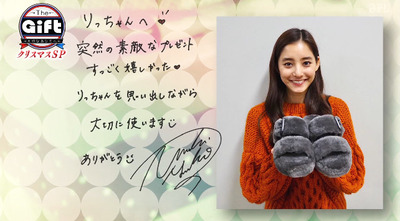 The
Gift
クリスマスSP
りっちゃんへ♥
突然の素敵なプレゼント
すっごく嬉しかった♥
りっちゃんを思い出しながら
大切に使います
ありがとう